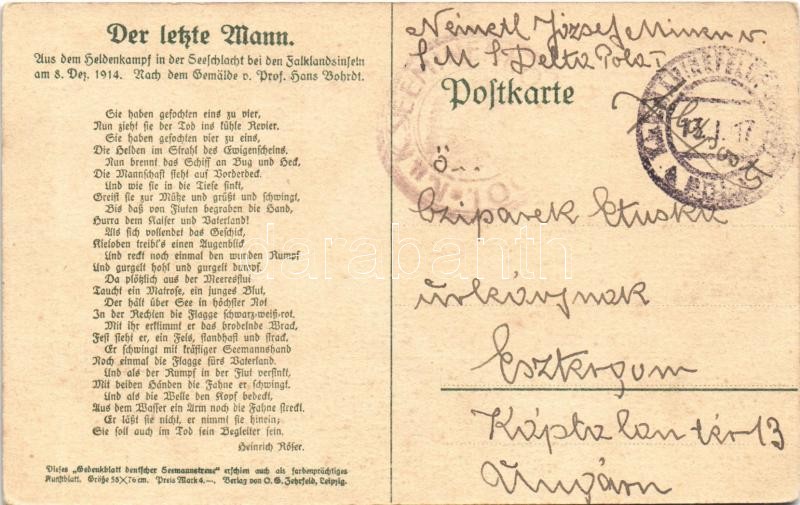 Der letzte Mann.
Aus dem Heldenkampf in der Seeschlacht bei den Falklandsinseln
am 8. Dez. 1914. Nach dem Gemälde v. Prof. Hans Bohrdt.
Sie haben gefochten eins zu vier,
Nun zieht sie der Tod ins kühle Revier.
Sie haben gefochten vier zu eins,
Die Helden im Strahl des Ewigenscheins.
Nun brennt das Schiff an Bug und Heck,
Die Mannschaft steht auf Vorderdeck.
Und wie sie in die Tiefe sinkt,
Greift sie zur Mütze und grüßt und schwingt,
Bis daß von Fluten begraben die Hand,
Hurra dem Kaiser und Vaterland!
Als sich vollendet das Geschick,
Kieloben treibt's einen Augenblick
Und reckt noch einmal den wunden Rumpf
Und gurgelt hohl und gurgelt dumpf.
Da plötzlich aus der Meeresflut
Taucht ein Matrose, ein junges Blut,
Der hält über See in höchster Not
In der Rechten die Flagge schwarz-weiß-rot.
Mit ihr erklimmt er das brodelnde Wrack,
Fest steht er, ein Fels, standhaft und strack.
Er schwingt mit kräftiger Seemannshand
Noch einmal die Flagge fürs Vaterland.
Und als der Rumpf in der Flut versinkt,
Mit beiden Händen die Fahne er schwingt.
Und als die Welle den Kopf bedeckt,
Aus dem Wasser ein Arm noch die Fahne streckt.
Er läßt sie nicht, er nimmt sie hinein;
Sie soll auch im Tod sein Begleiter sein.
Heinrich Röser.
Dieses „Gedenkblatt deutscher Seemannstreue“ erschien auch als farbenprächtiges
Kunstblatt. Größe 58×76 cm. Preis Mark 4.—. Verlag von O. G. Zehrfeld, Leipzig.
József
S M S Delta Pola
Postkarte
13. I. 17
Ö...
Cziparek Etuska
úrleánynak
Esztergom
Káptalan tér 13
Ungarn
darabanth